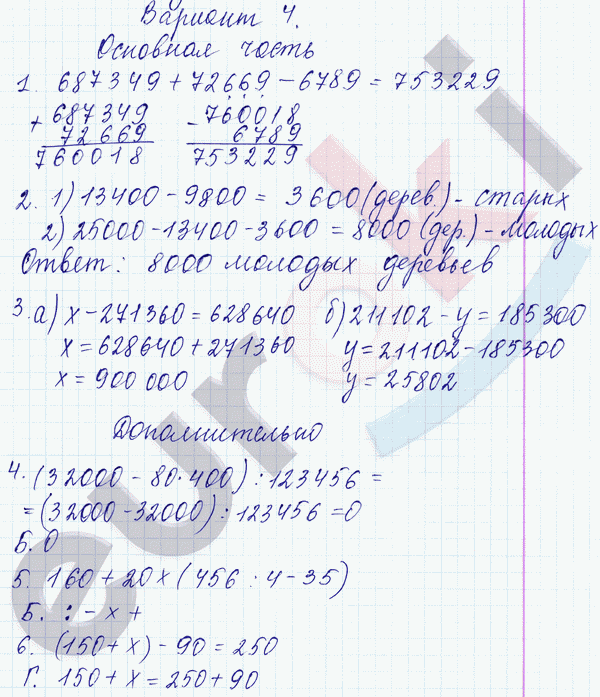 Вариант 4.
Основная часть
1. 687349 + 72669 - 6789 = 753229
+ 687349 - 760018
72669 6789
760018 753229
2. 1) 13400 - 9800 = 3600 (дерев.) - старых
2) 25000 - 13400 - 3600 = 8000 (дер.) - молодых
Ответ: 8000 молодых деревьев
3. а) x - 271360 = 628640 б) 211102 - y = 185300
x = 628640 + 271360 y = 211102 - 185300
x = 900 000 y = 25802
Дополнительно
4. (32000 - 80·400) : 123456 =
= (32000 - 32000) : 123456 = 0
Б. 0
5. 160 + 20 x (456 : 4 - 35)
Б. : - x +
6. (150 + x) - 90 = 250
Г. 150 + x = 250 + 90
euroki